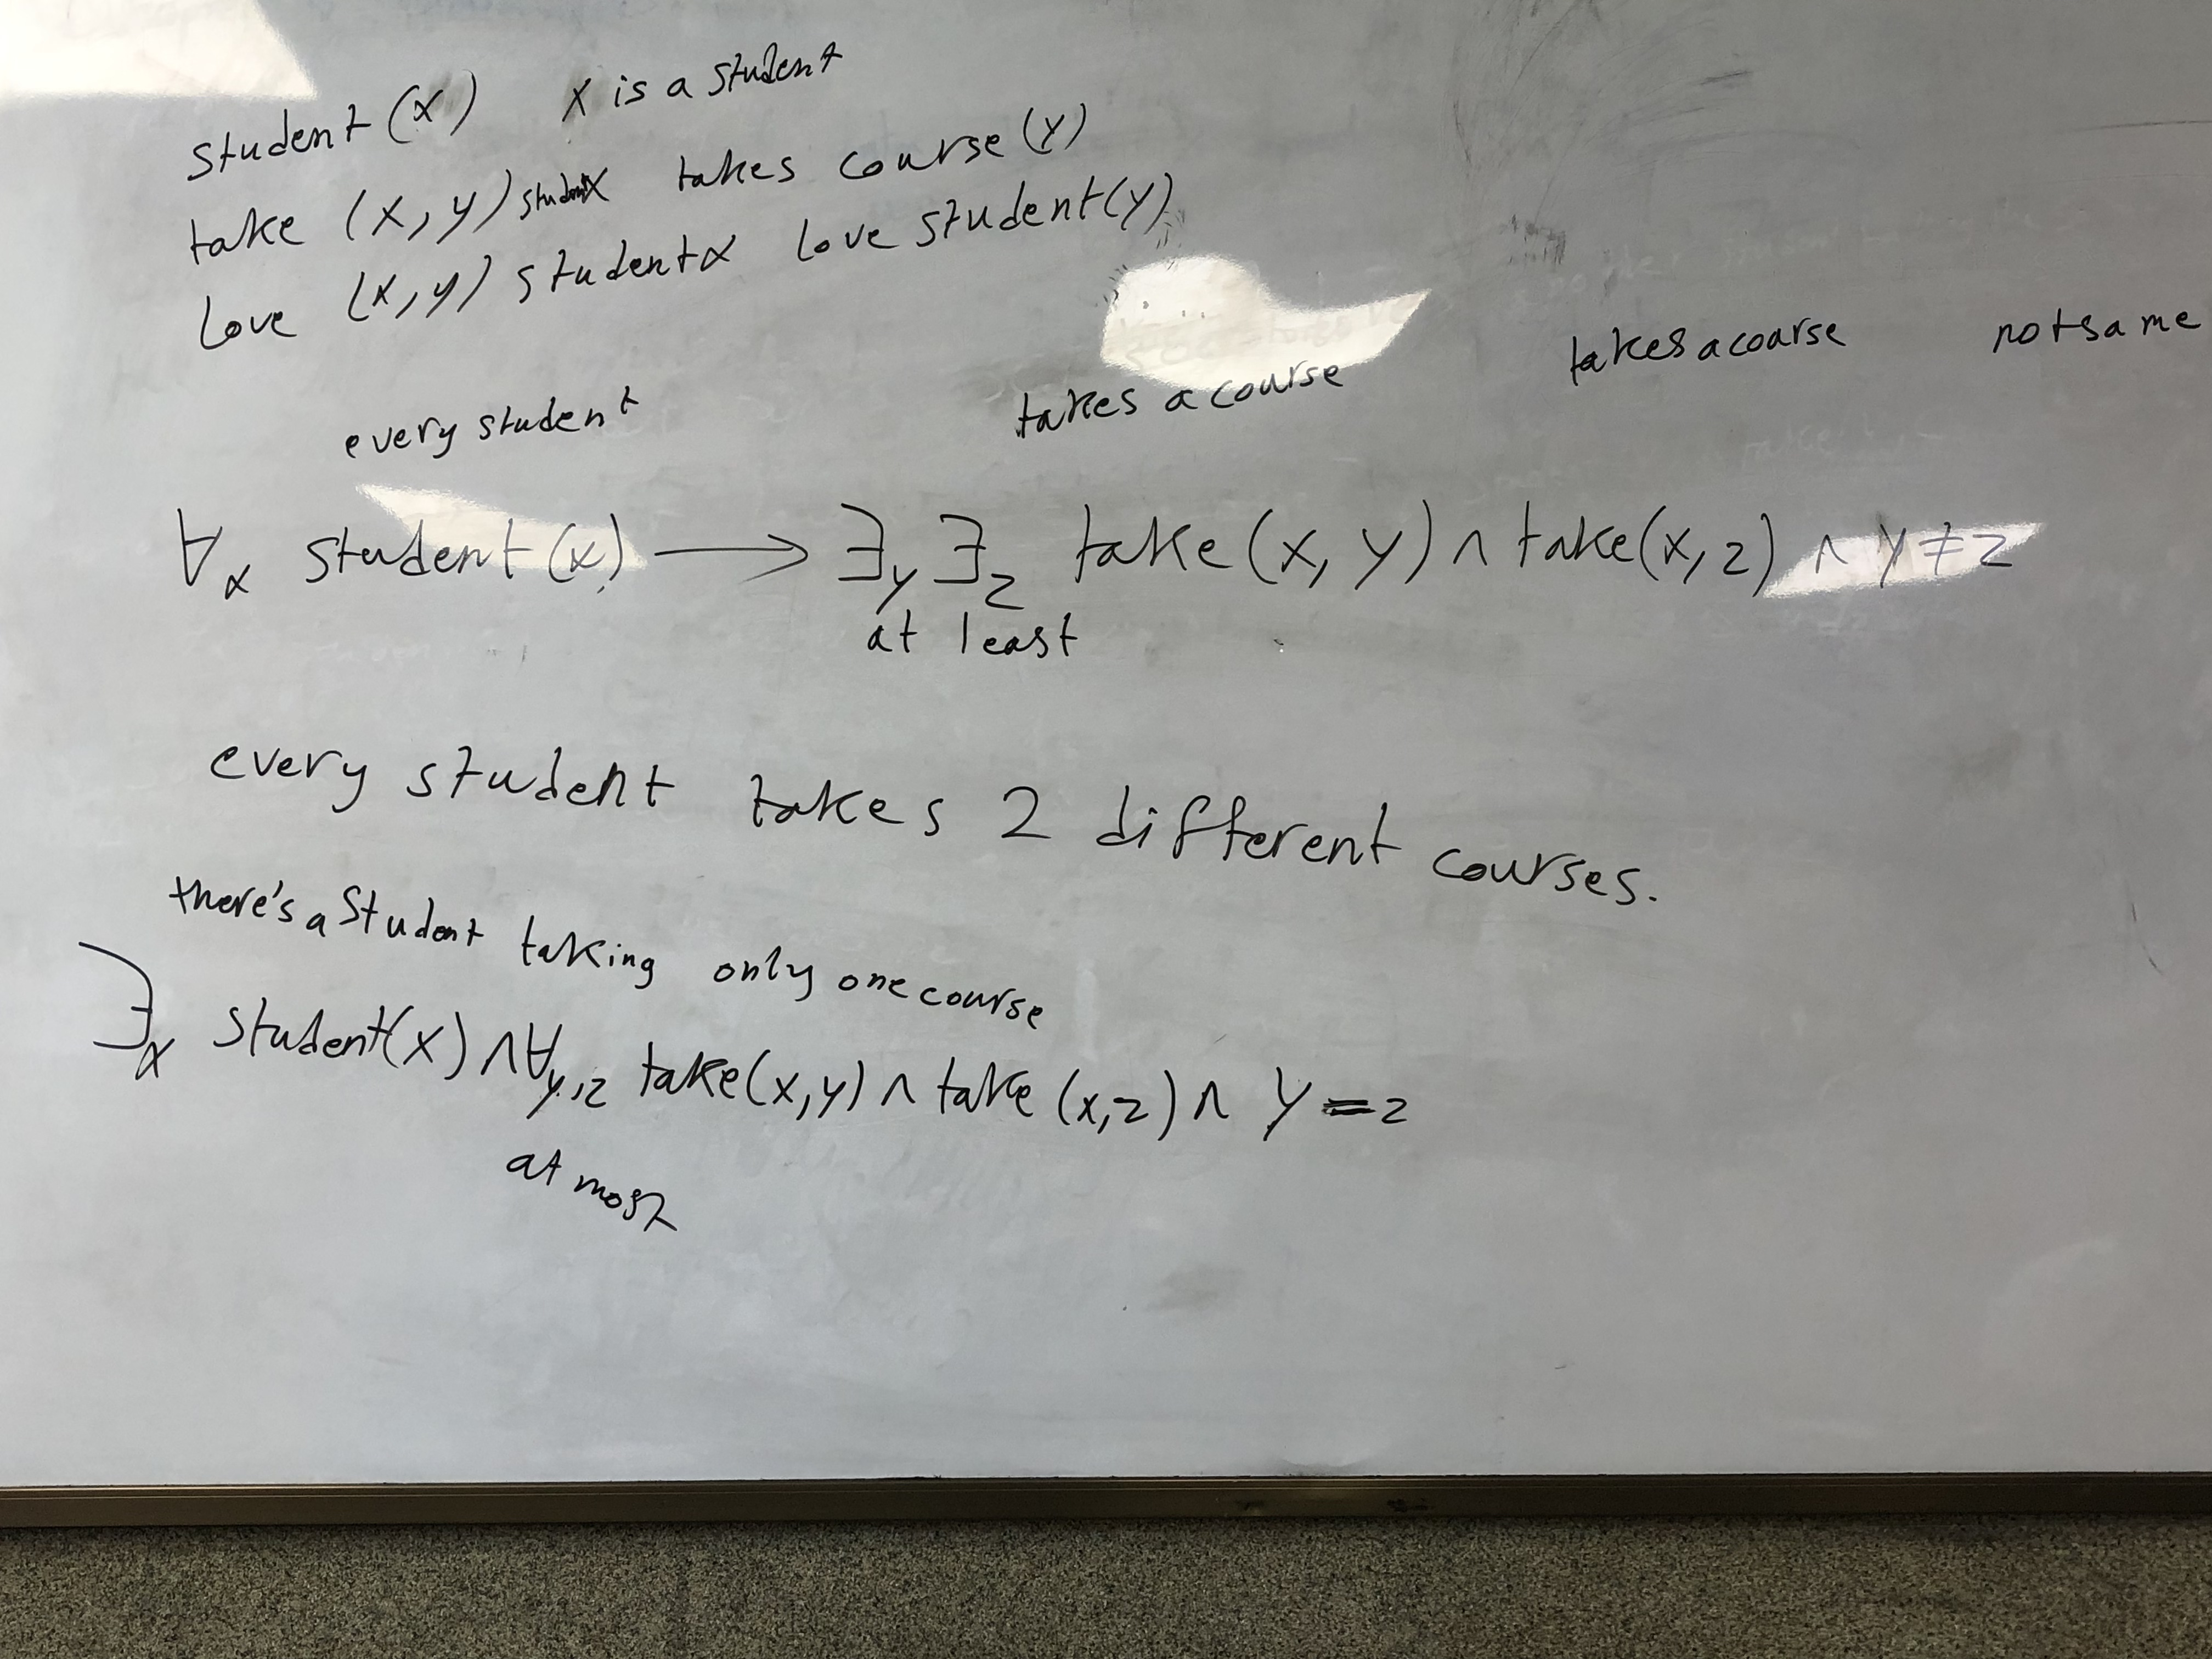 student (x) x is a student
take (x, y) student x takes course (y)
Love (x, y) student x love student (y)
every student takes a course takes a coarse not same
∀x student (x) ⟶ ∃y ∃z take (x, y) ∧ take (x, z) ∧ y ≠ z
at least
every student takes 2 different courses.
there's a student taking only one course
∃x student(x) ∧ ∀y,z take (x, y) ∧ take (x, z) ∧ y = z
at most